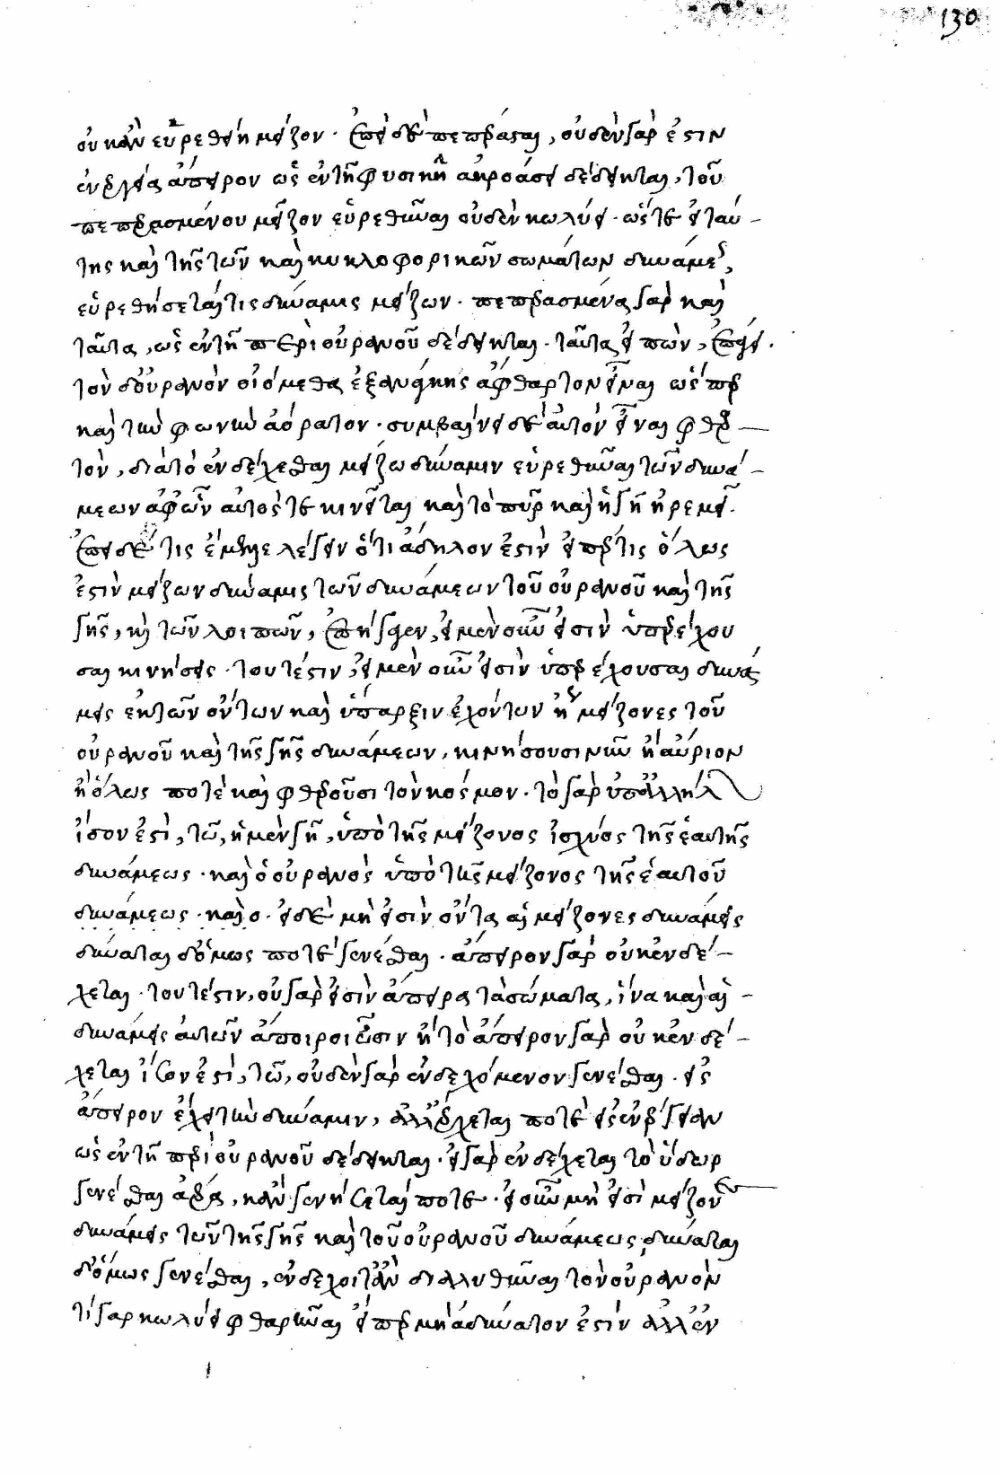 130
οὐκ ἂν εὑρεθείη μεῖζον · ἐπεὶ δὲ πεπέρασται, οὐδὲν γάρ ἐστιν
ἐνεργείας ἄπειρον ὡς ἐν τῇ φυσικῇ ἀκροάσει δέδεικται, τοῦ
πεπερασμένου μεῖζον εὑρεθῆναι οὐδὲν κωλύει · ὥστε εἰ ταύ-
της καὶ τῆς τῶν καὶ κυκλοφορικῶν σωμάτων δυνάμεως,
εὑρεθήσεταί τις δύναμις μείζων · πεπερασμένα γὰρ καὶ
ταῦτα, ὡς ἐν τῇ περὶ οὐρανοῦ δέδεικται · ταῦτα εἰπὼν, ἐπάγει ·
τὸν δ' οὐρανὸν οἰόμεθα ἐξ ἀνάγκης ἄφθαρτον εἶναι ὥσπερ
καὶ τὴν φωνὴν ἀόρατον · συμβαίνει δὲ αὐτὸν εἶναι φθαρ-
τὸν, διὰ τὸ ἐνδέχεσθαι μείζω δύναμιν εὑρεθῆναι τῶν δυνά-
μεων ἀφ' ὧν αὐτός τε κινεῖται καὶ τὸ πῦρ καὶ ἡ γῆ ἠρεμεῖ.
ἐπεὶ δέ τις ἔμελλε λέγειν ὅτι ἄδηλον ἐστὶν εἴπερ τις ὅλως
ἐστὶν μείζων δύναμις τῶν δυνάμεων τοῦ οὐρανοῦ καὶ τῆς
γῆς, κὶ τῶν λοιπῶν, ἐπήγαγεν, εἰ μὲν οὖν εἰσὶν ὑπερέχου
σαι κινήσεις · τουτέστιν, εἰ μὲν οὖν εἰσὶν ὑπερέχουσαι δυνά
μεις ἐκ τῶν ὄντων καὶ ὕπαρξιν ἐχόντων ἢ μείζονες τοῦ
οὐρανοῦ καὶ τῆς γῆς δυνάμεων, κινήσουσι νῦν ἢ αὔριον
ἢ ὅλως ποτὲ καὶ φθεροῦσι τὸν κόσμον · τὸ γὰρ ὑπ' ἀλλήλων
ἴσον ἐστὶ, τῷ, ἡ μὲν γῆ, ὑπὸ τῆς μείζονος ἰσχύος τῆς ἑαυτῆς
δυνάμεως · καὶ ὁ οὐρανὸς ὑπὸ τῆς μείζονος τῆς ἑαυτοῦ
δυνάμεως · καὶ ὁ · εἰ δὲ μὴ εἰσὶν ὄντα αἱ μείζονες δυνάμεις
δύναται δ' ὅμως ποτὲ γενέσθαι · ἄπειρον γὰρ οὐκ ἐνδέ-
χεται · τουτέστιν, οὐ γὰρ εἰσὶν ἄπειρα τὰ σώματα, ἵνα καὶ αἱ
δυνάμεις αὐτῶν ἄποιροι ὦσιν ἢ τὸ ἄπειρον γὰρ οὐκ ἐνδέ-
χεται ἴσον ἐστὶ, τῷ, οὐδὲν γὰρ ἐνδεχόμενον γενέσθαι · εἰς
ἄπειρον ἔχει τὴν δύναμιν, ἀλλ' ἔρχεται ποτὲ εἰς ἐνέργειαν
ὡς ἐν τῇ περὶ οὐρανοῦ δέδεικται · εἰ γὰρ ἐνδέχεται τὸ ὕδωρ
γενέσθαι ἀέρα, κἂν γενήσεταί ποτε · εἰ οὖν μὴ εἰσὶ μείζονες
δυνάμεις τῶν τῆς γῆς καὶ τοῦ οὐρανοῦ δυνάμεως, δύναται
δ' ὅμως γενέσθαι, ἐνδέχοιτ' ἂν διαλυθῆναι τὸν οὐρανὸν
τί γὰρ κωλύει φθαρῆναι εἴπερ μὴ ἀδύνατον ἐστὶν ἀλλ' ἐν